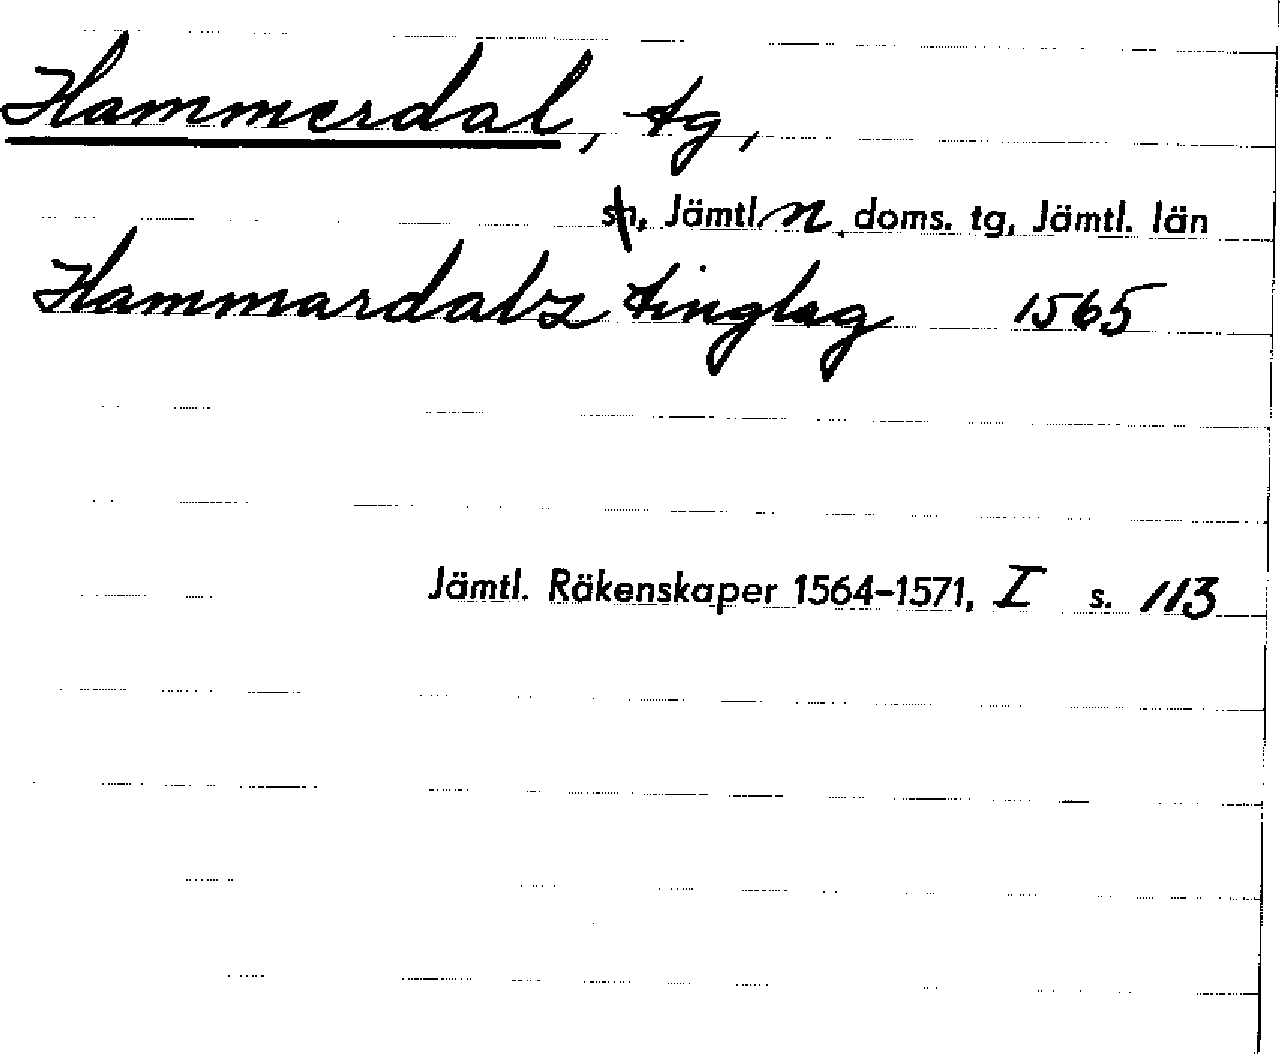 Hammerdal, tg,
sn, Jämtl. n. doms. tg, Jämtl. län
Hammardalz tinglag 1565
Jämtl. Räkenskaper 1564-1571, I s. 113